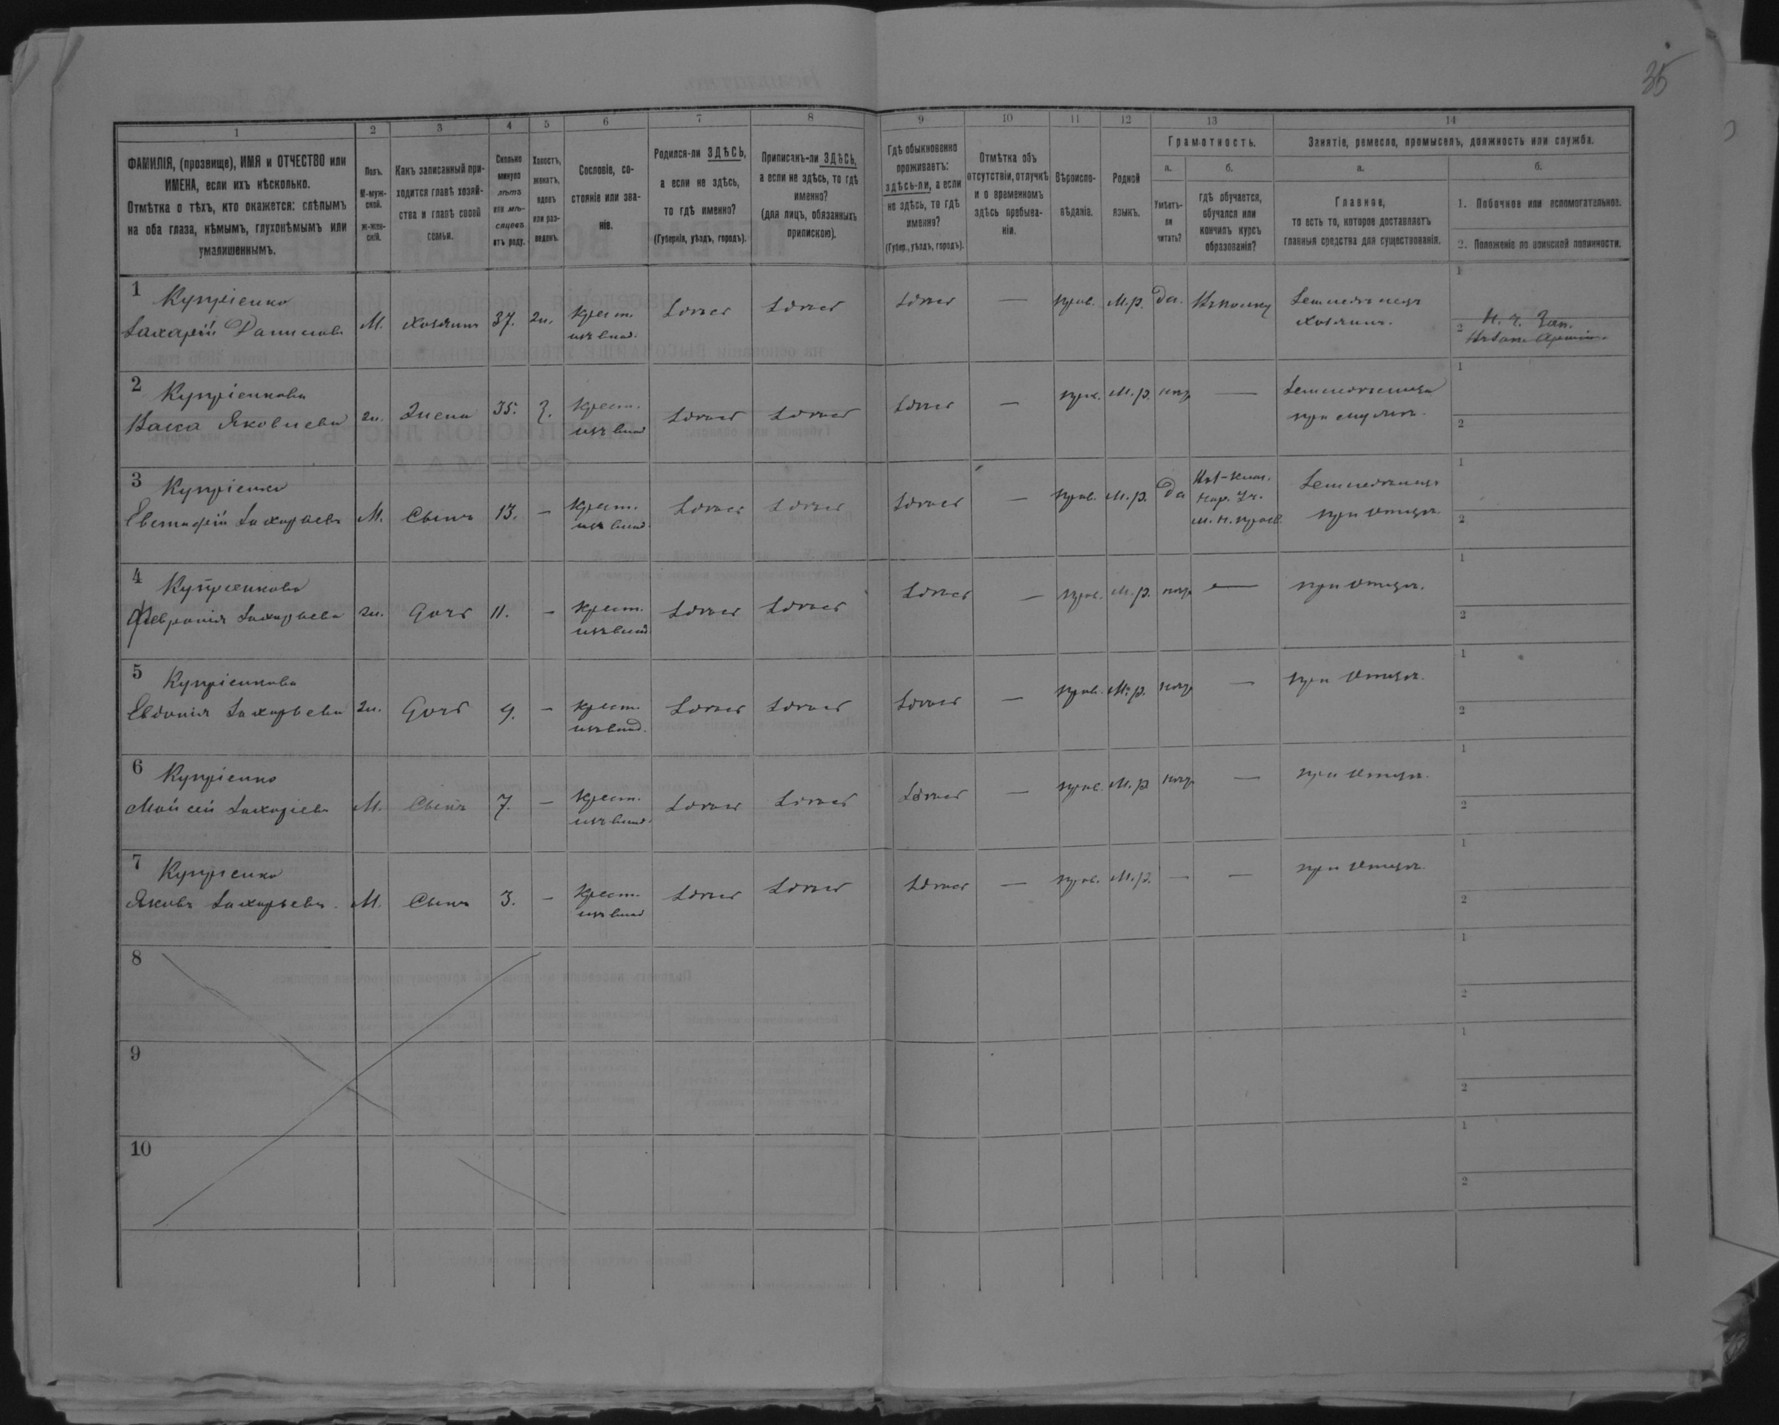 35
1 2 3 4 5 6 7 8 9 10 11 12 13 14
ФАМИЛІЯ, (прозвище), ИМЯ и ОТЧЕСТВО или
ИМЕНА, если ихъ нѣсколько.
Отмѣтка о тѣхъ, кто окажется: слѣпымъ
на оба глаза, нѣмымъ, глухонѣмымъ или
умалишеннымъ.
Полъ.
М-муж-
ской.
ж-жен-
скій.
Какъ записанный при-
ходится главѣ хозяй-
ства и главѣ своей
семьи.
Сколько
минуло
лѣтъ
или мѣ-
сяцевъ
отъ роду.
Холостъ,
женатъ,
вдовъ
или раз-
веденъ.
Сословіе, со-
стояніе или зва-
ніе.
Родился-ли ЗДѢСЬ,
а если не здѣсь,
то гдѣ именно?
(Губернія, уѣздъ, городъ).
Приписанъ-ли ЗДѢСЬ,
а если не здѣсь, то гдѣ
именно?
(для лицъ, обязанныхъ
припискою).
Гдѣ обыкновенно
проживаетъ:
здѣсь-ли, а если
не здѣсь, то гдѣ
именно?
(Губер., уѣздъ, городъ).
Отмѣтка объ
отсутствіи, отлучкѣ
и о временномъ
здѣсь пребыва-
ніи.
Вѣроиспо-
вѣданіе.
Родной
языкъ.
Грамотность.
а.
Умѣетъ-
ли
читать?
б.
гдѣ обучается,
обучался или
кончилъ курсъ
образованія?
Занятіе, ремесло, промыселъ, должность или служба.
а.
Главное,
то есть то, которое доставляетъ
главныя средства для существованія.
б.
1. Побочное или вспомогательное.
2. Положеніе по воинской повинности.
1 Купріенко
Захарій Данилов М. хозяинъ 37. ж. крест. Здѣсь Здѣсь Здѣсь — прав. М.р. да.
Земледѣлецъ
хозяинъ.
1
2
2 Купріенкова
Васса Яковлева ж. Жена 35. з. крест. Здѣсь Здѣсь Здѣсь — прав. М.р. нѣтъ —
при мужѣ.
1
2
3 Купріенко
Евстафій Захарьевъ М. Сынъ 13. — крест. Здѣсь Здѣсь Здѣсь — прав. М.р. да
при отцѣ
1
2
4 Купріенкова
Февронія Захарьева ж. Дочь 11. — крест. Здѣсь Здѣсь Здѣсь — прав. М.р. нѣтъ — при отцѣ.
1
2
5 Купріенкова
Евдокія Захарьева ж. Дочь 9. — крест. Здѣсь Здѣсь Здѣсь — прав. М.р. нѣтъ — при отцѣ.
1
2
6 Купріенко
Мойсей Захаріевъ М. Сынъ 7. — крест. Здѣсь Здѣсь Здѣсь — прав. М.р. нѣтъ — при отцѣ.
1
2
7 Купріенко
Яковъ Захарьевъ. М. Сынъ 3. — крест. Здѣсь Здѣсь Здѣсь — прав. М.р. — — при отцѣ.
1
2
8
1
2
9
1
2
10
1
2